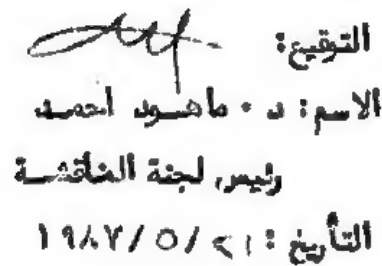 التوقيع :
الاسم : د . ماهود احمد
رئيس لجنة المناقشة
التأريخ : ٢١ / ٥ / ١٩٨٧